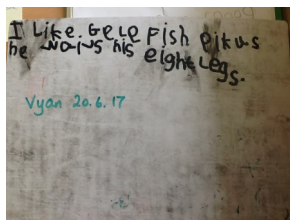 I Like. Gele Fish pikus
he his eight Legs.
Vyan 20.6.17